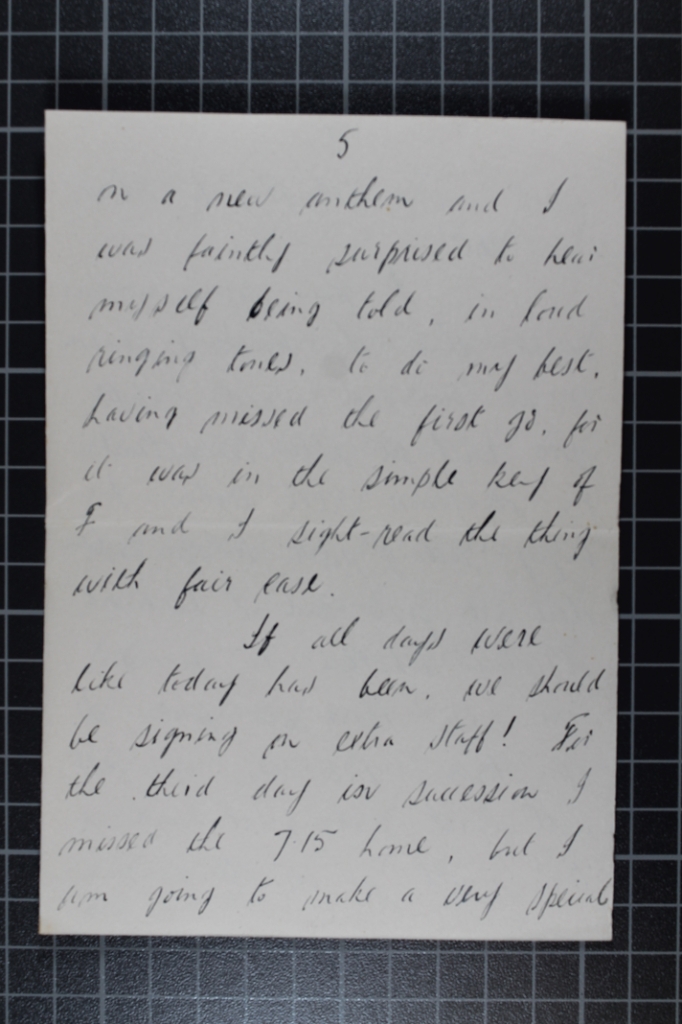 5
on a new anthem and I
was faintly surprised to hear
myself being told, in loud
ringing tones, to do my best,
having missed the first go, for
it was in the simple key of
F and I sight-read the thing
with fair ease.
If all days were
like today has been, we should
be signing on extra staff! For
the third day in succession I
missed the 7.15 home, but I
am going to make a very special